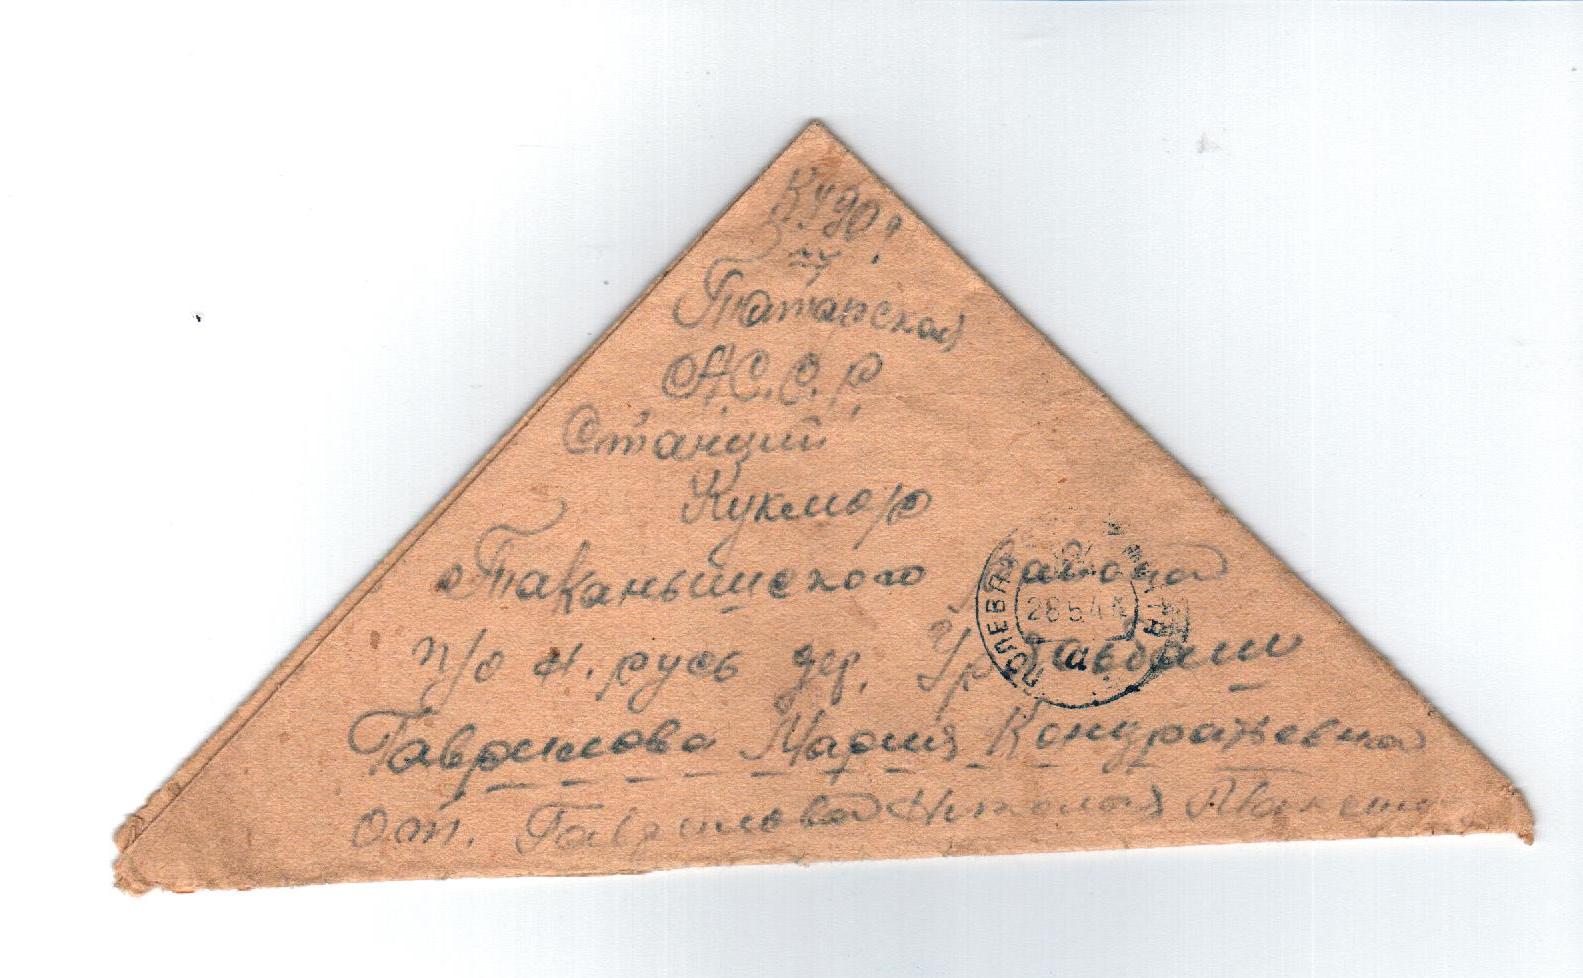 Куда!
Татарской
А.С.С.Р.
Станций
Кукмор
Таканышского района
п/о Н. русь дер. Ур Тавбаш
Гаврилова Мария Кондратевной
От. Гаврилова Николая
ПОЛЕВАЯ ПОЧТА
28 5 44
а